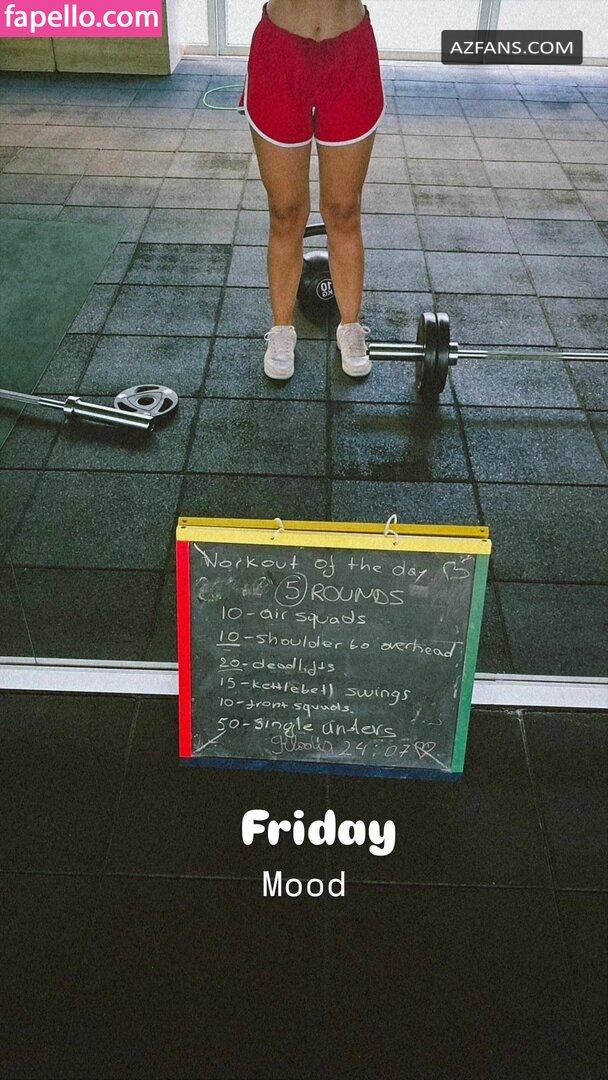 fapello.com
AZFANS.COM
10
KG
Workout of the day
5 ROUNDS
10-air squads
10-shoulder to overhead
20-deadlifts
15-kettlebell swings
10-front squads
50-single unders
24:07
Friday
Mood